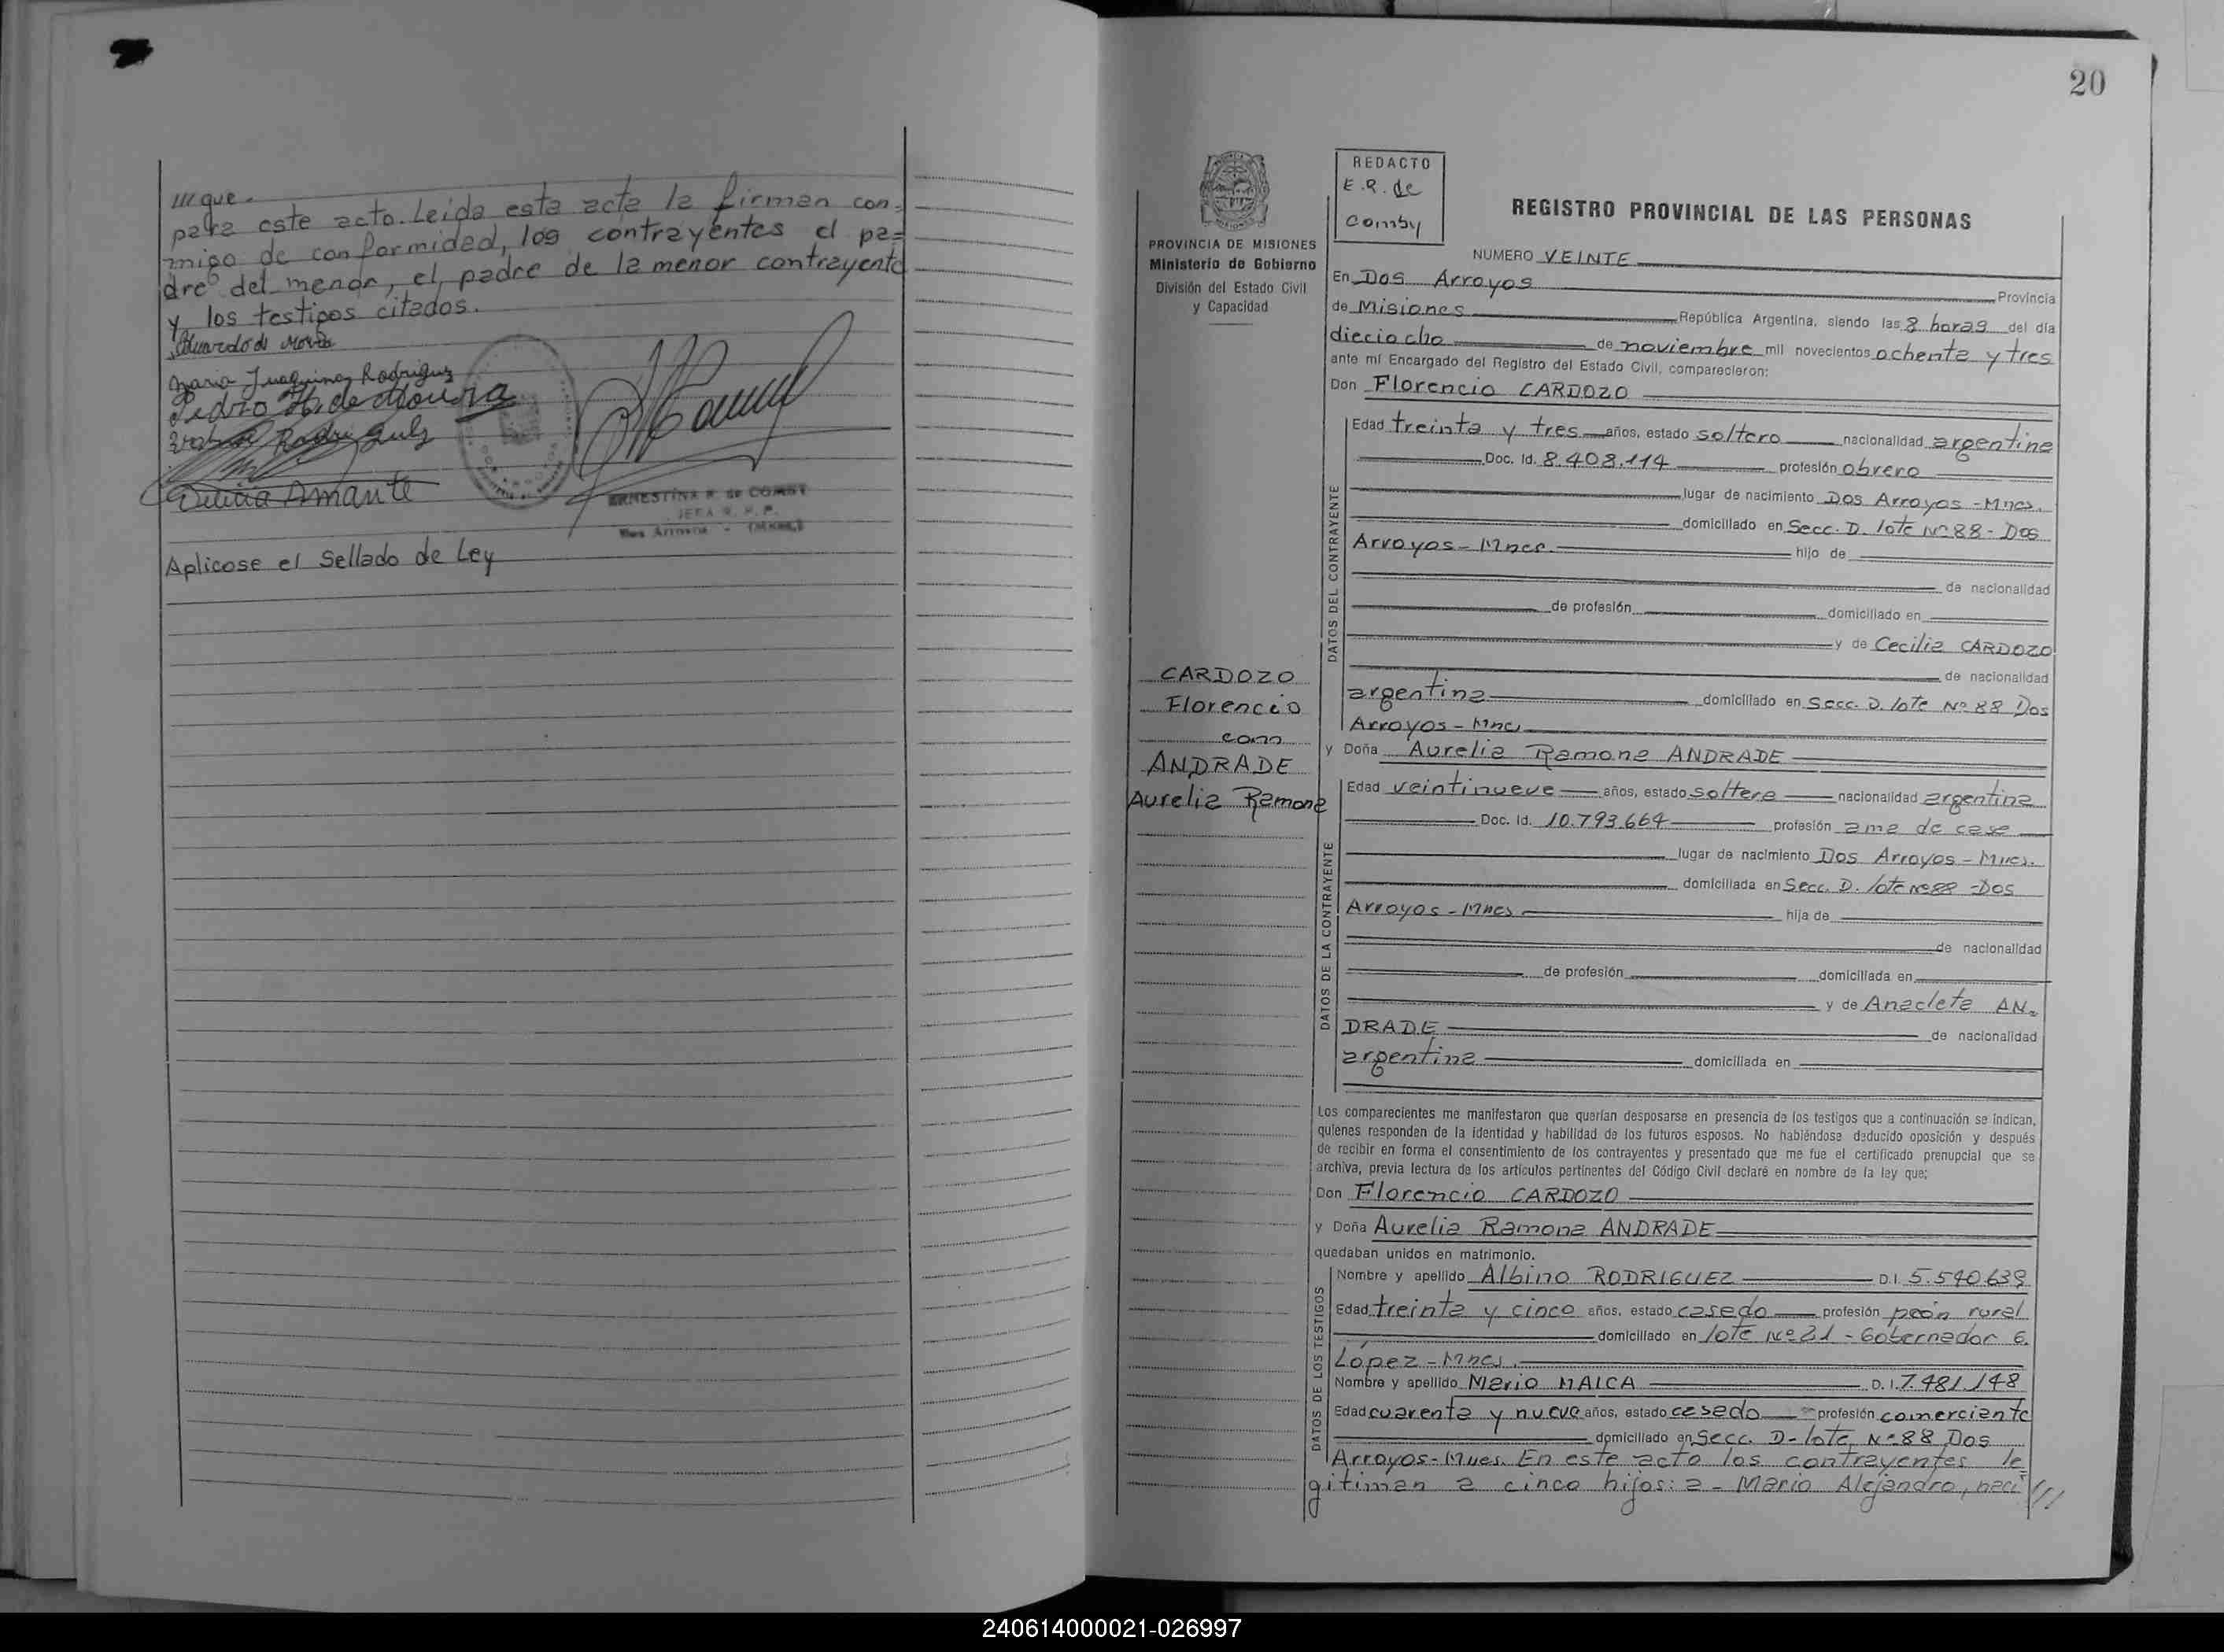 /// que.
para este acto. Leida esta acta la firman con=
migo de conformidad, los contrayentes el pa=
dre del menor, el padre de la menor contrayente
y los testigos citados.
Maria Juaquina Rodriguez
Delicia Amante
ERNESTINA R. de COMBY
JEFA R. P. P.
Dos Arroyos - (Mnes.)
Aplicose el Sellado de Ley
20
PROVINCIA DE MISIONES
Ministerio de Gobierno
División del Estado Civil
y Capacidad
REDACTO
E.R. de
Comby
REGISTRO PROVINCIAL DE LAS PERSONAS
NUMERO VEINTE
En Dos Arroyos Provincia
de Misiones República Argentina, siendo las 8 horas del día
dieciocho de noviembre mil novecientos ochenta y tres
ante mí Encargado del Registro del Estado Civil, comparecieron:
Don Florencio CARDOZO
DATOS DEL CONTRAYENTE
Edad treinta y tres años, estado soltero nacionalidad argentina
Doc. Id. 8.408.114 profesión obrero
lugar de nacimiento Dos Arroyos - Mnes.
domiciliado en Secc. D. lote Nº 88 - Dos
Arroyos - Mnes. hijo de
de nacionalidad
de profesión domiciliado en
y de Cecilia CARDOZO
de nacionalidad
argentina domiciliado en Secc. D. lote Nº 88 Dos
Arroyos - Mnes
CARDOZO
Florencio
con
ANDRADE
Aurelia Ramona
y Doña Aurelia Ramona ANDRADE
DATOS DE LA CONTRAYENTE
Edad veintinueve años, estado soltera nacionalidad argentina
Doc. Id. 10.793.664 profesión ama de casa
lugar de nacimiento Dos Arroyos - Mnes.
domiciliada en Secc. D. lote Nº 88 - Dos
Arroyos - Mnes hija de
de nacionalidad
de profesión domiciliada en
y de Anacleta AN=
DRADE de nacionalidad
argentina domiciliada en
Los comparecientes me manifestaron que querían desposarse en presencia de los testigos que a continuación se indican,
quienes responden de la identidad y habilidad de los futuros esposos. No habiéndose deducido oposición y después
de recibir en forma el consentimiento de los contrayentes y presentado que me fue el certificado prenupcial que se
archiva, previa lectura de los artículos pertinentes del Código Civil declaré en nombre de la ley que;
Don Florencio CARDOZO
y Doña Aurelia Ramona ANDRADE
quedaban unidos en matrimonio.
DATOS DE LOS TESTIGOS
Nombre y apellido Albino RODRIGUEZ D.I. 5.540.639
Edad treinta y cinco años, estado casado profesión peón rural
domiciliado en lote Nº 21 - Gobernador
López - Mnes.
Nombre y apellido Mario MALCA D.I. 7.481.148
Edad cuarenta y nueve años, estado casado profesión comerciante
domiciliado en Secc. D - lote Nº 88 Dos
Arroyos - Mnes. En este acto los contrayentes le=
gitiman a cinco hijos: a - Mario Alejandro, naci ///
240614000021-026997